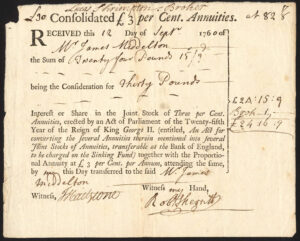 £30 Consolidated £3 per Cent. Annuities. at 82 8
RECEIVED this 12 Day of Sept 1760 of
Mr James Middelton
the Sum of Twenty four Pounds 15/9
being the Consideration for Thirty Pounds
£24 15 9
£24 16 9
Interest or Share in the Joint Stock of Three per Cent.
Annuities, erected by an Act of Parliament of the Twenty-fifth
Year of the Reign of King George II. (entitled, An Act for
converting the several Annuities therein mentioned into several
Joint Stocks of Annuities, transferable at the Bank of England,
to be charged on the Sinking Fund) together with the Proportional
Annuity at £3 per Cent. per Annum, attending the same,
by me this Day transferred to the said Mr James
Middelton
Witness my Hand,
Witness,